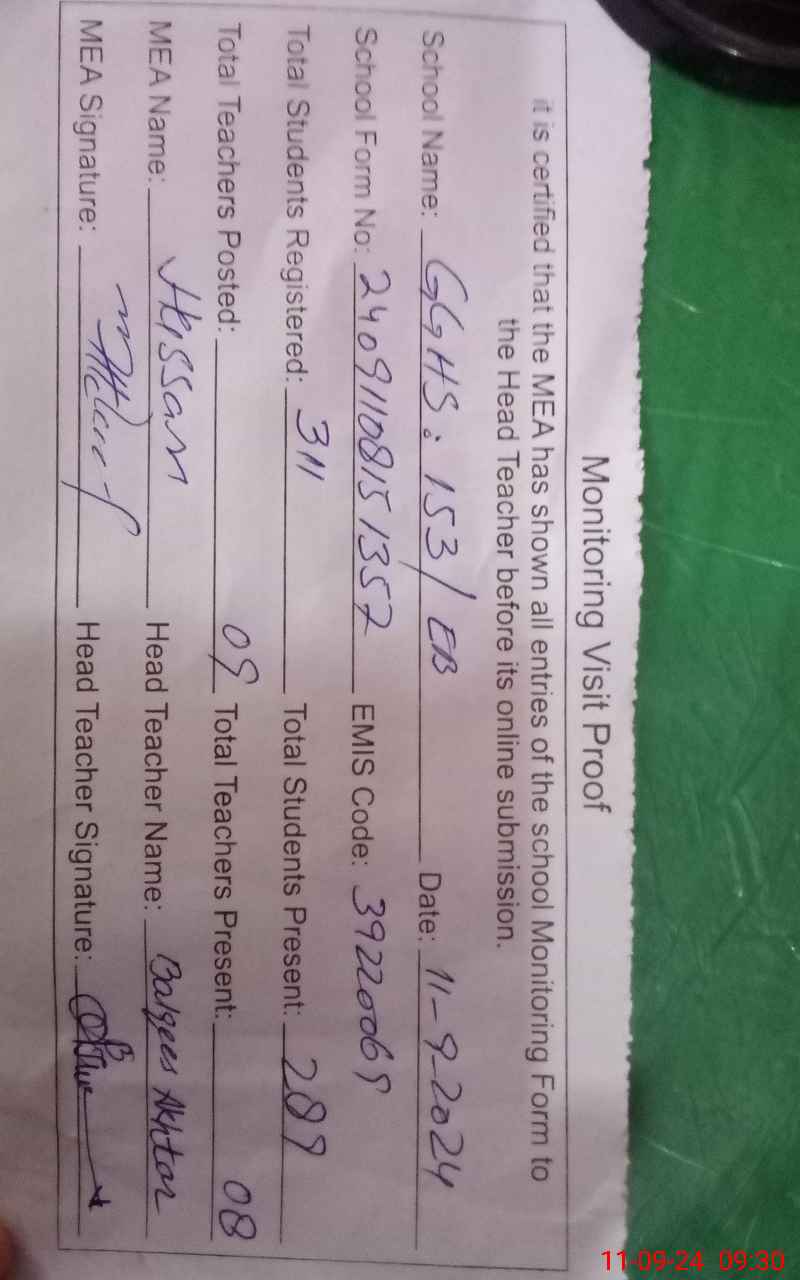 Monitoring Visit Proof
it is certified that the MEA has shown all entries of the school Monitoring Form to
the Head Teacher before its online submission.
School Name: GGHS: 153/EB Date: 11-9-2024
School Form No: 2409110815 1357 EMIS Code: 39220069
Total Students Registered: 311 Total Students Present: 289
Total Teachers Posted: 09 Total Teachers Present: 08
MEA Name: Hassan Head Teacher Name: Balqees Akhtar
MEA Signature: Head Teacher Signature:
11-09-24 09:30